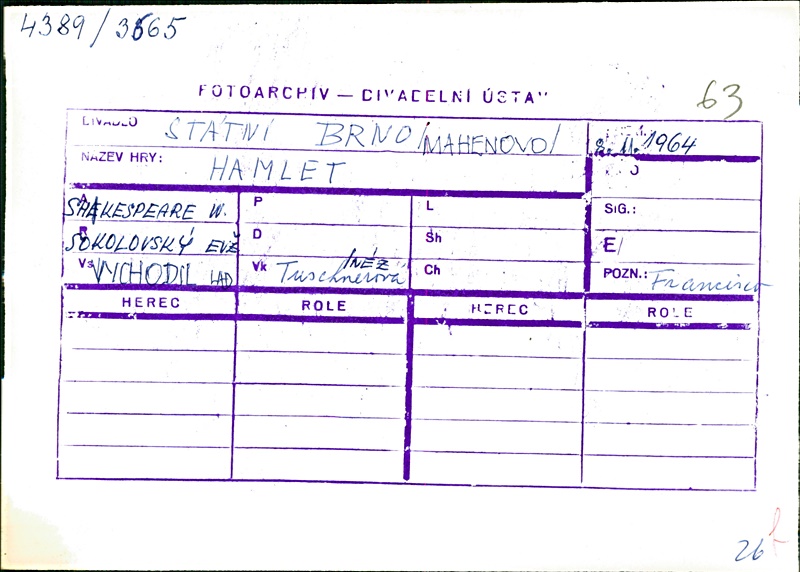 4389/3565
FOTOARCHÍV — DIVADELNÍ ÚSTAV
63
DIVADLO STÁTNÍ BRNO /MAHENOVO/
1964
NÁZEV HRY: HAMLET
A SHAKESPEARE W. P L SIG.:
R SOKOLOVSKÝ EVŽ D Sh E/
Vs VYCHODIL LAD Vk Tuschnerová INÉZ Ch POZN.: Francisco
HEREC ROLE HEREC ROLE
26